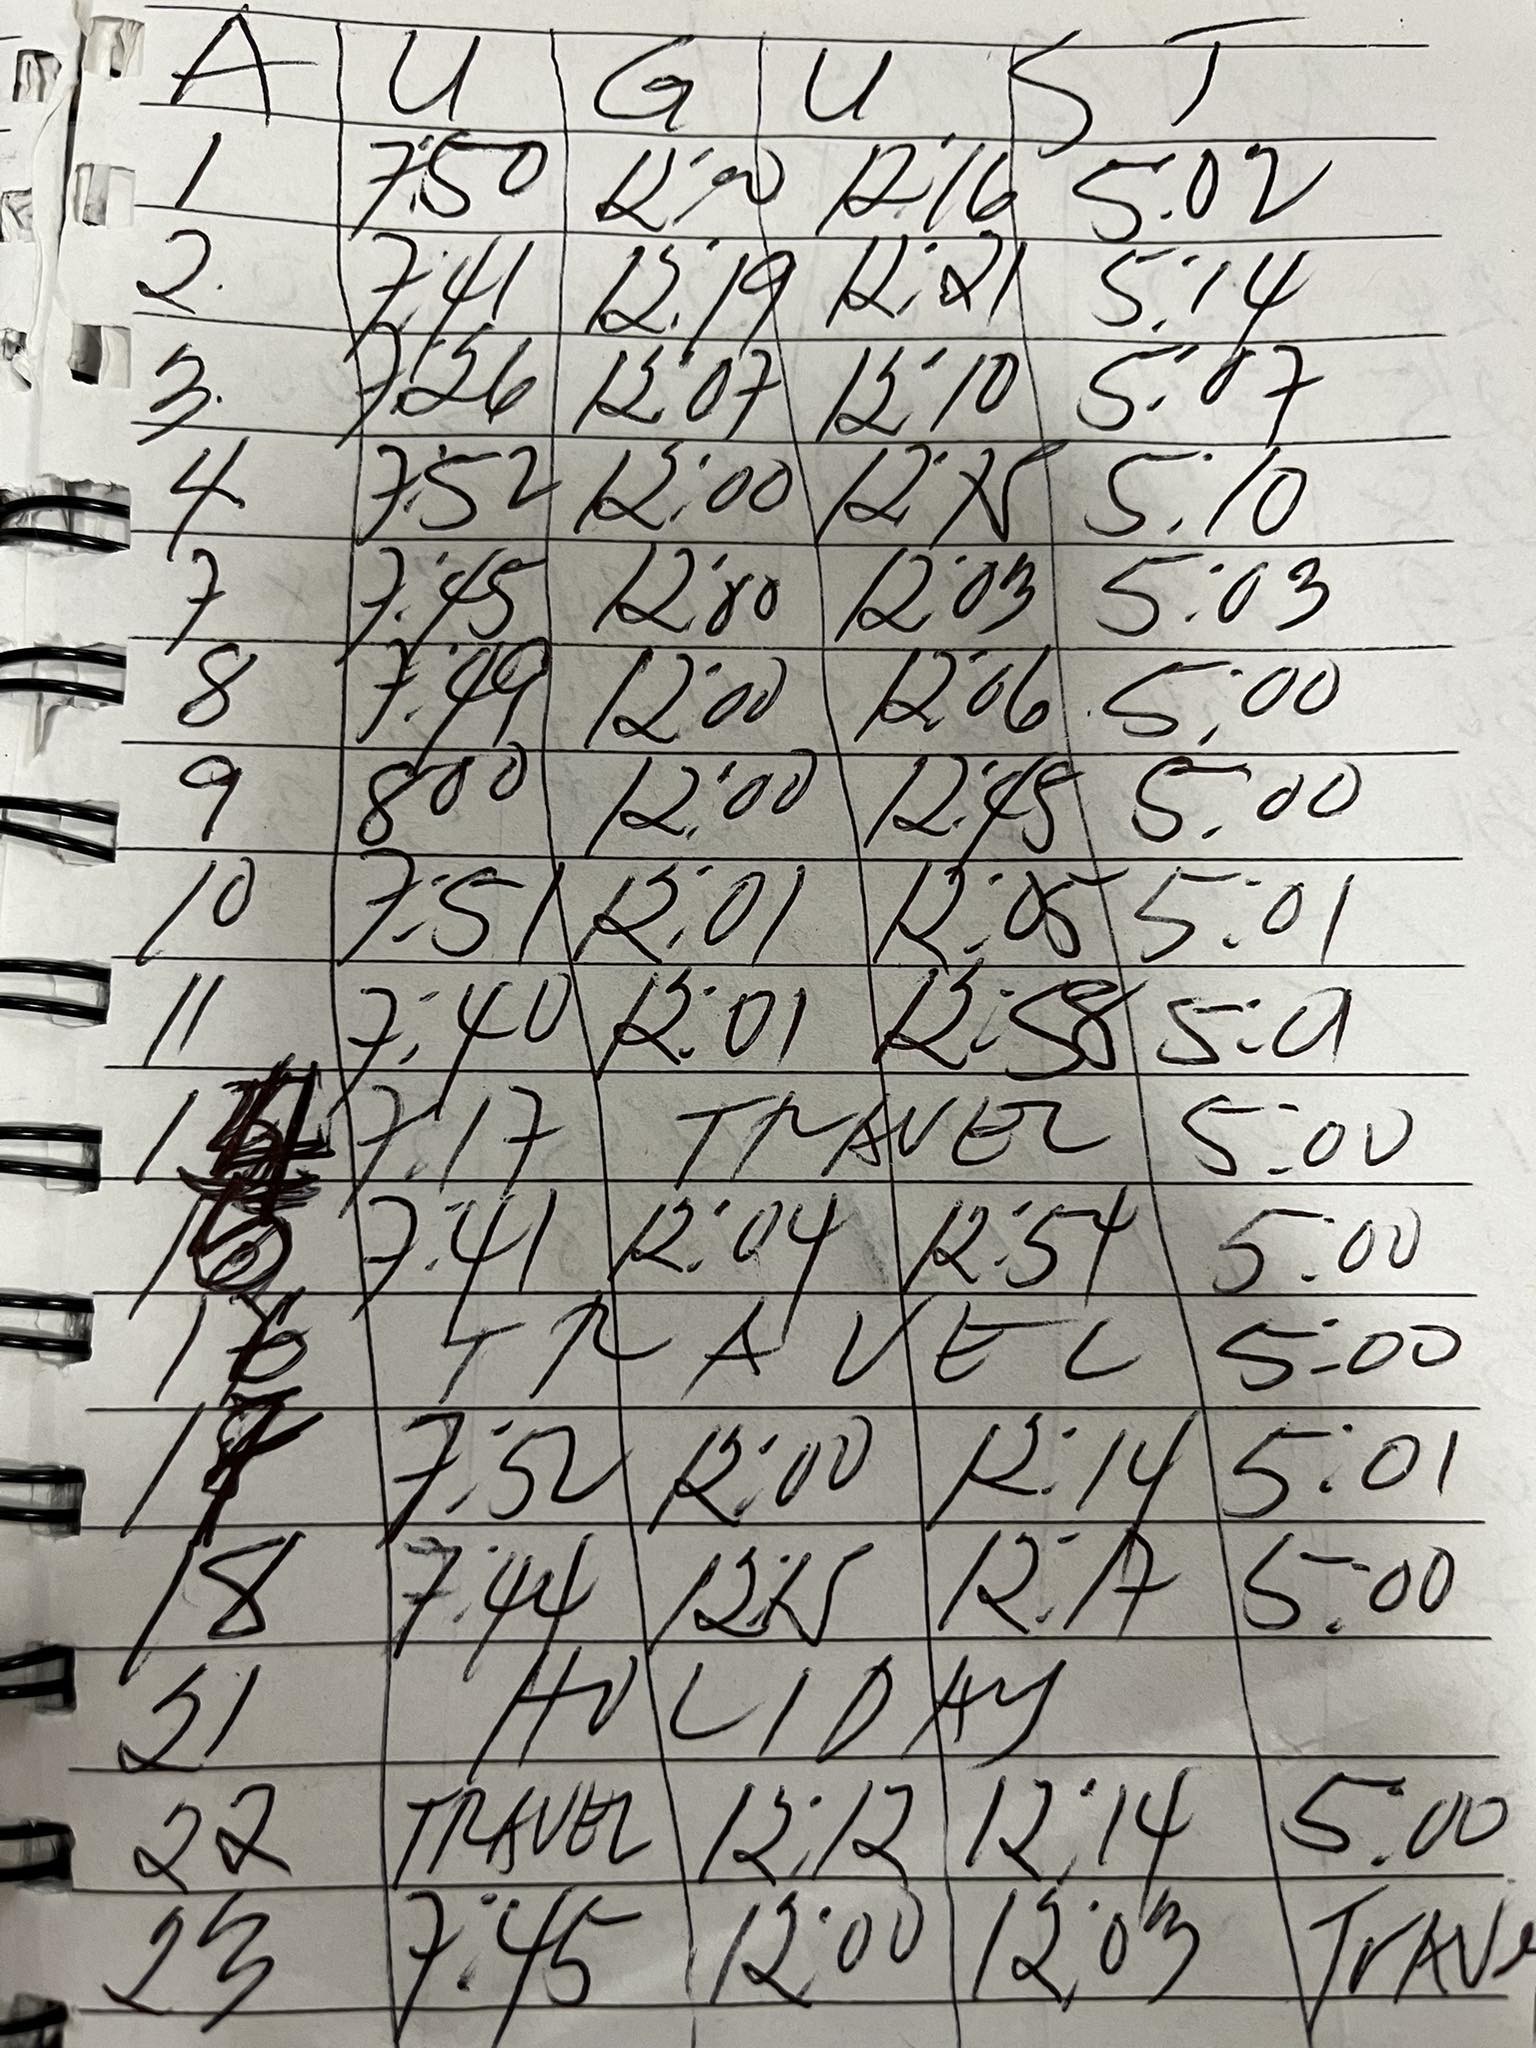 A U G U S T
1 7:50 12:00 12:16 5:02
2. 7:41 12:19 12:21 5:14
3. 7:26 12:07 12:10 5:07
4. 7:52 12:00 5:10
7 7:45 12:00 12:03 5:03
8 7:49 12:00 12:06 5:00
9 800 12:00 12:45 5:00
10 7:51 12:01 12:05 5:01
11 7:40 12:01 12:58 5:01
14 7:17 TRAVEL 5:00
15 7:41 12:04 12:54 5:00
16 TRAVEL 5:00
17 7:52 12:00 12:14 5:01
18 7:44 12:15 12:17 5:00
21 HOLIDAY
22 TRAVEL 12:12 12:14 5:00
23 7:45 12:00 12:03 TrAV